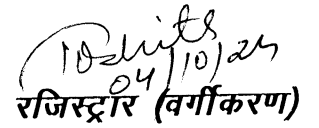 04/10/24
रजिस्ट्रार (वर्गीकरण)